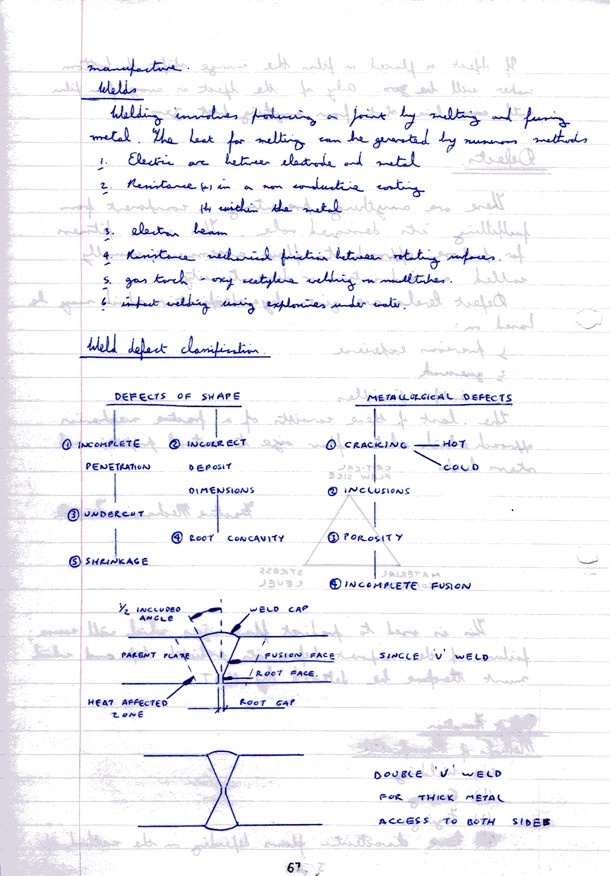 manufacture.
Welds
Welding involves producing a joint by melting and fusing
metal. The heat for melting can be generated by numerous methods
1. Electric arc between electrode and metal
2. Resistance (a) in a non conductive coating
(b) within the metal
3. electron beam
4. Resistance mechanical friction between rotating surfaces.
5. gas torch - oxy acetylene welding
6. impact welding using explosives under water.
Weld defect classification.
DEFECTS OF SHAPE
METALLURGICAL DEFECTS
① INCOMPLETE PENETRATION
② INCORRECT DEPOSIT DIMENSIONS
③ UNDERCUT
④ ROOT CONCAVITY
⑤ SHRINKAGE
① CRACKING
HOT
COLD
② INCLUSIONS
③ POROSITY
④ INCOMPLETE FUSION
1/2 INCLUDED ANGLE
WELD CAP
PARENT PLATE
FUSION FACE
ROOT FACE.
SINGLE 'V' WELD
HEAT AFFECTED ZONE
ROOT GAP
DOUBLE 'V' WELD
FOR THICK METAL
ACCESS TO BOTH SIDES
67